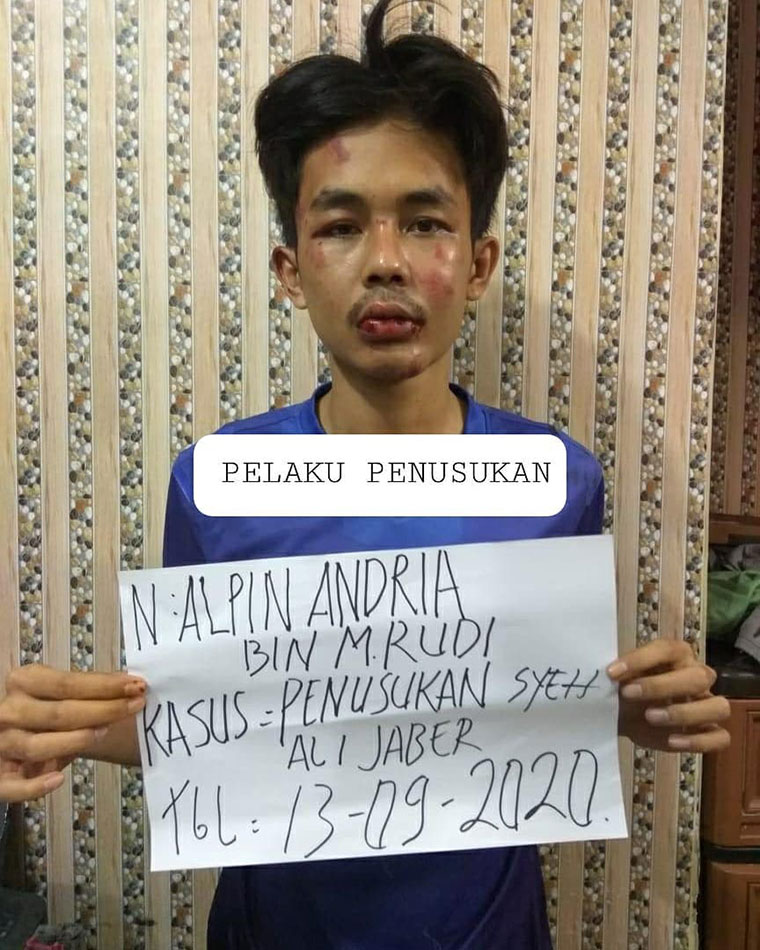 PELAKU PENUSUKAN
N : ALPIN ANDRIA
BIN M. RUDI
KASUS = PENUSUKAN SYEH
ALI JABER
TGL = 13-09-2020.